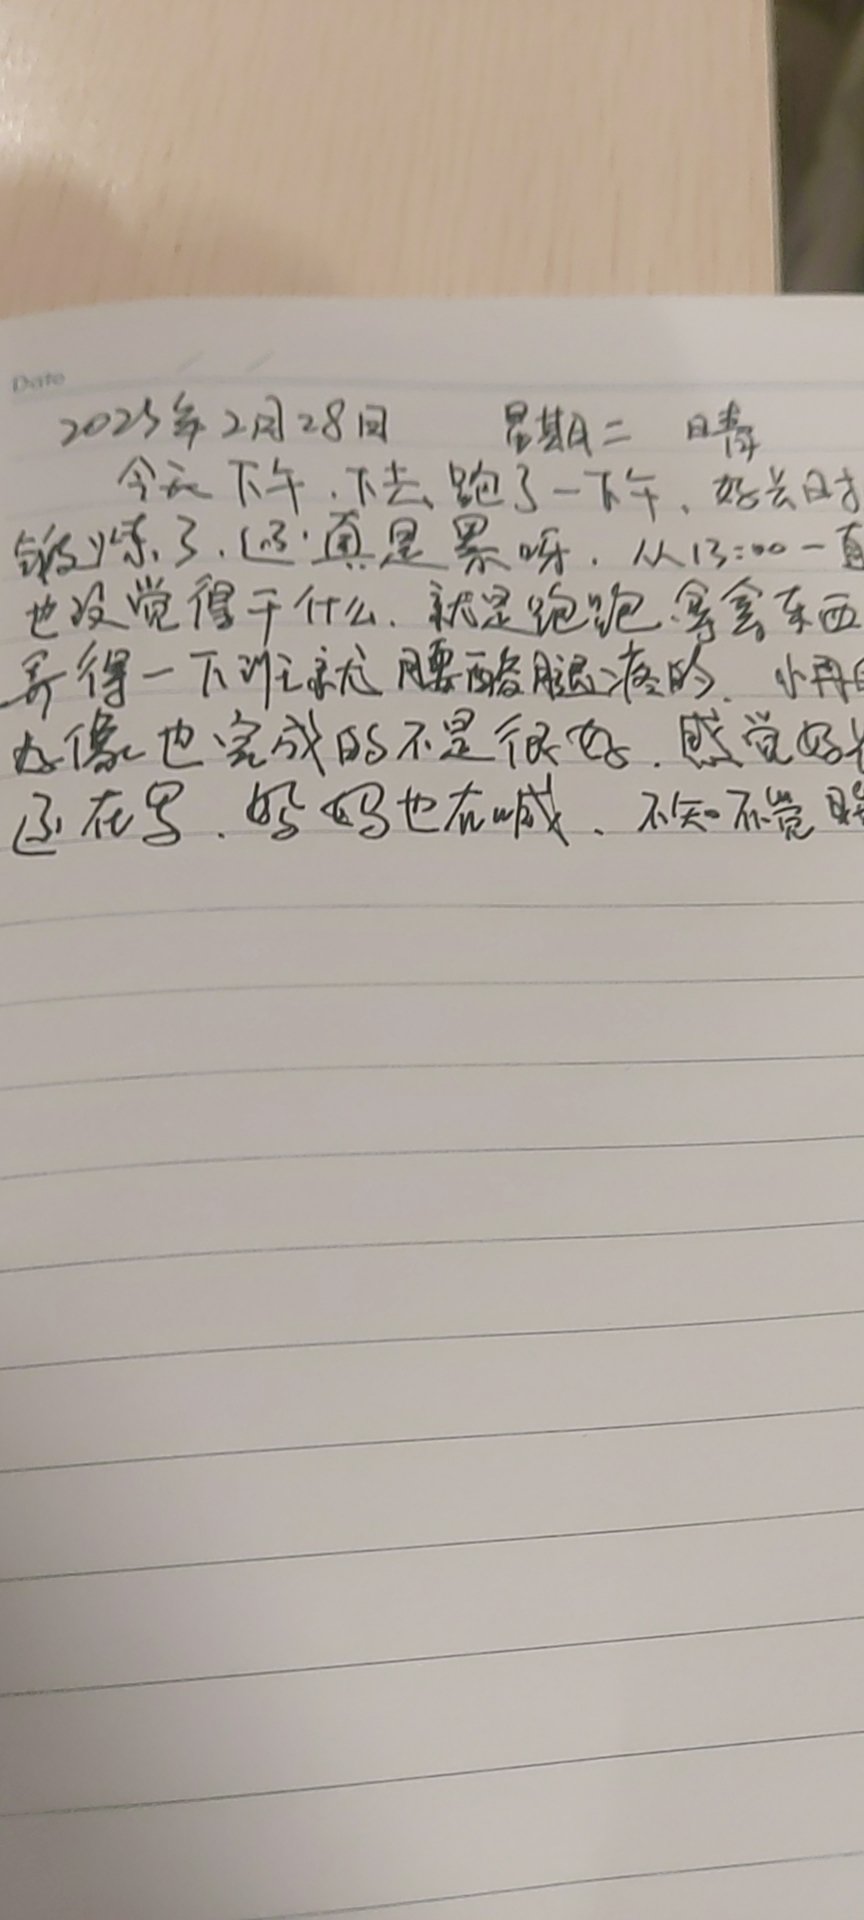 Date
2023年2月28日 星期二 晴
今天下午、下去跑了一下午、好长时
锻炼了、还真是累呀、从13:00一直
也没觉得干什么、就是跑跑、拿拿东西
弄得一下班就腰酸腿疼的、小再
好像也完成的不是很好、感觉好长
还在写、妈妈也在喊、不知不觉